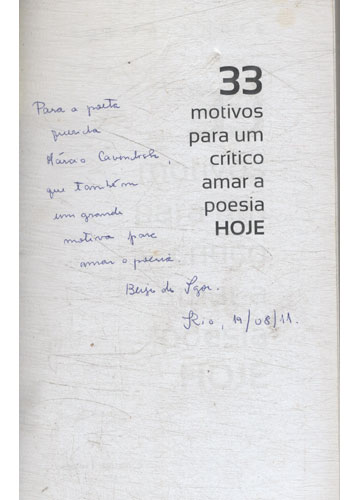 33
motivos
para um
crítico
amar a
poesia
HOJE
Para a poeta
querida
Márcio
que também
um grande
motivo para
amar a poesia
Beijo do Igor.
Rio, 19/08/11.